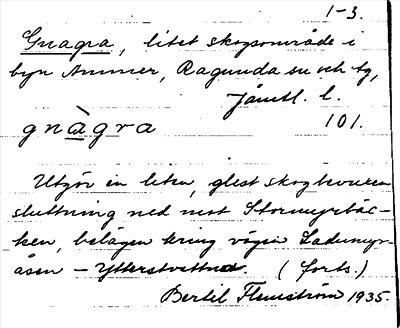 1-3.
Gnagra, litet skogsområde i
byn Ammer, Ragunda sn och tg,
Jämtl. l.
gnàgra 101.
Utgör en liten, glest skogbevuxen
sluttning ned mot Stormyrbäc-
ken, belägen kring vägen Ladumyr-
åsen - Ytterstvattnet. (forts.)
Bertil Flemström 1935.